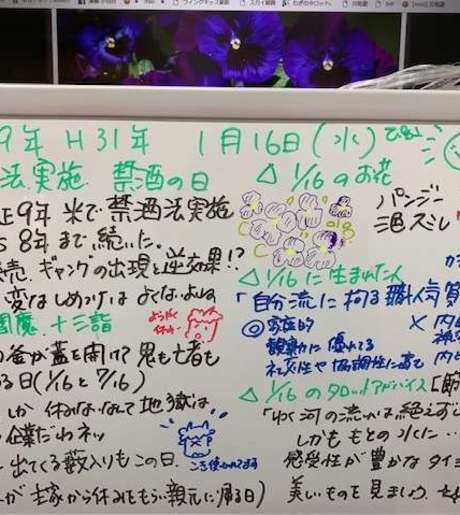 9年 H31年 1月16日(水)
法実施 禁酒の日
正9年 米で禁酒法実施
8年まで続いた。
ギャングの出現と逆効果!?
変なしめつけは よくないよね
閻魔・十三詣
ようやく
の釜が蓋を開けて 鬼も亡者も
る日(1/16と7/16)
しか 休みなんて 地獄は
企業だわネッ
出てくる藪入りもこの日
こき使われてます
が 主家から休みをもらい親元に帰る日)
△ 1/16 のお花
パンジー
三色スミレ
△ 1/16 に生まれた人
「自分流に拘る職人気質
◎ 家庭的
観察力に優れてる
社交性や協調性に富む
× 内
△ 1/16 のタロットアドバイス
「ゆく河の流れは絶えず
しかももとの水に…
感受性が豊かなタイ
美しいものを見ましょう。